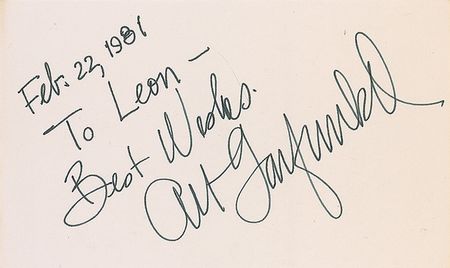 Feb. 22, 1981
To Leon –
Best Wishes.
Art Garfunkel